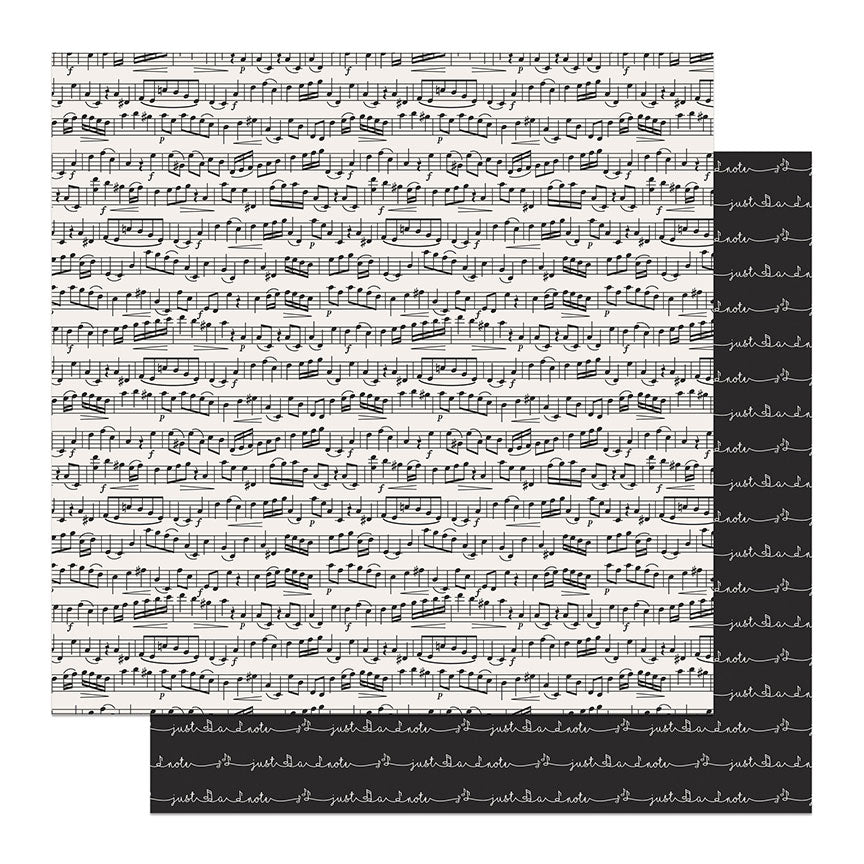 note
just a
note
just a
note
just a
note
just a
note
just a
note
just a
note
just a
note
just a
just a note just a note just a note just a note
note just a note just a note just a note just a
just a note just a note just a note just a note